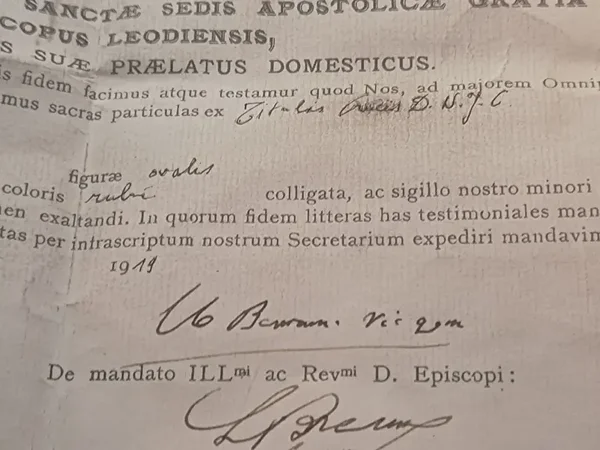 SANCTÆ SEDIS APOSTOLICÆ GRATIA
COPUS LEODIENSIS,
S SUÆ PRÆLATUS DOMESTICUS.
is fidem facimus atque testamur quod Nos, ad majorem Omnip
mus sacras particulas ex Titulis Crucis D. N. J. C.
figuræ ovalis
coloris rubri colligata, ac sigillo nostro minori
men exaltandi. In quorum fidem litteras has testimoniales man
tas per infrascriptum nostrum Secretarium expediri mandavim
1919
vic gen
De mandato ILLmi ac Revmi D. Episcopi: